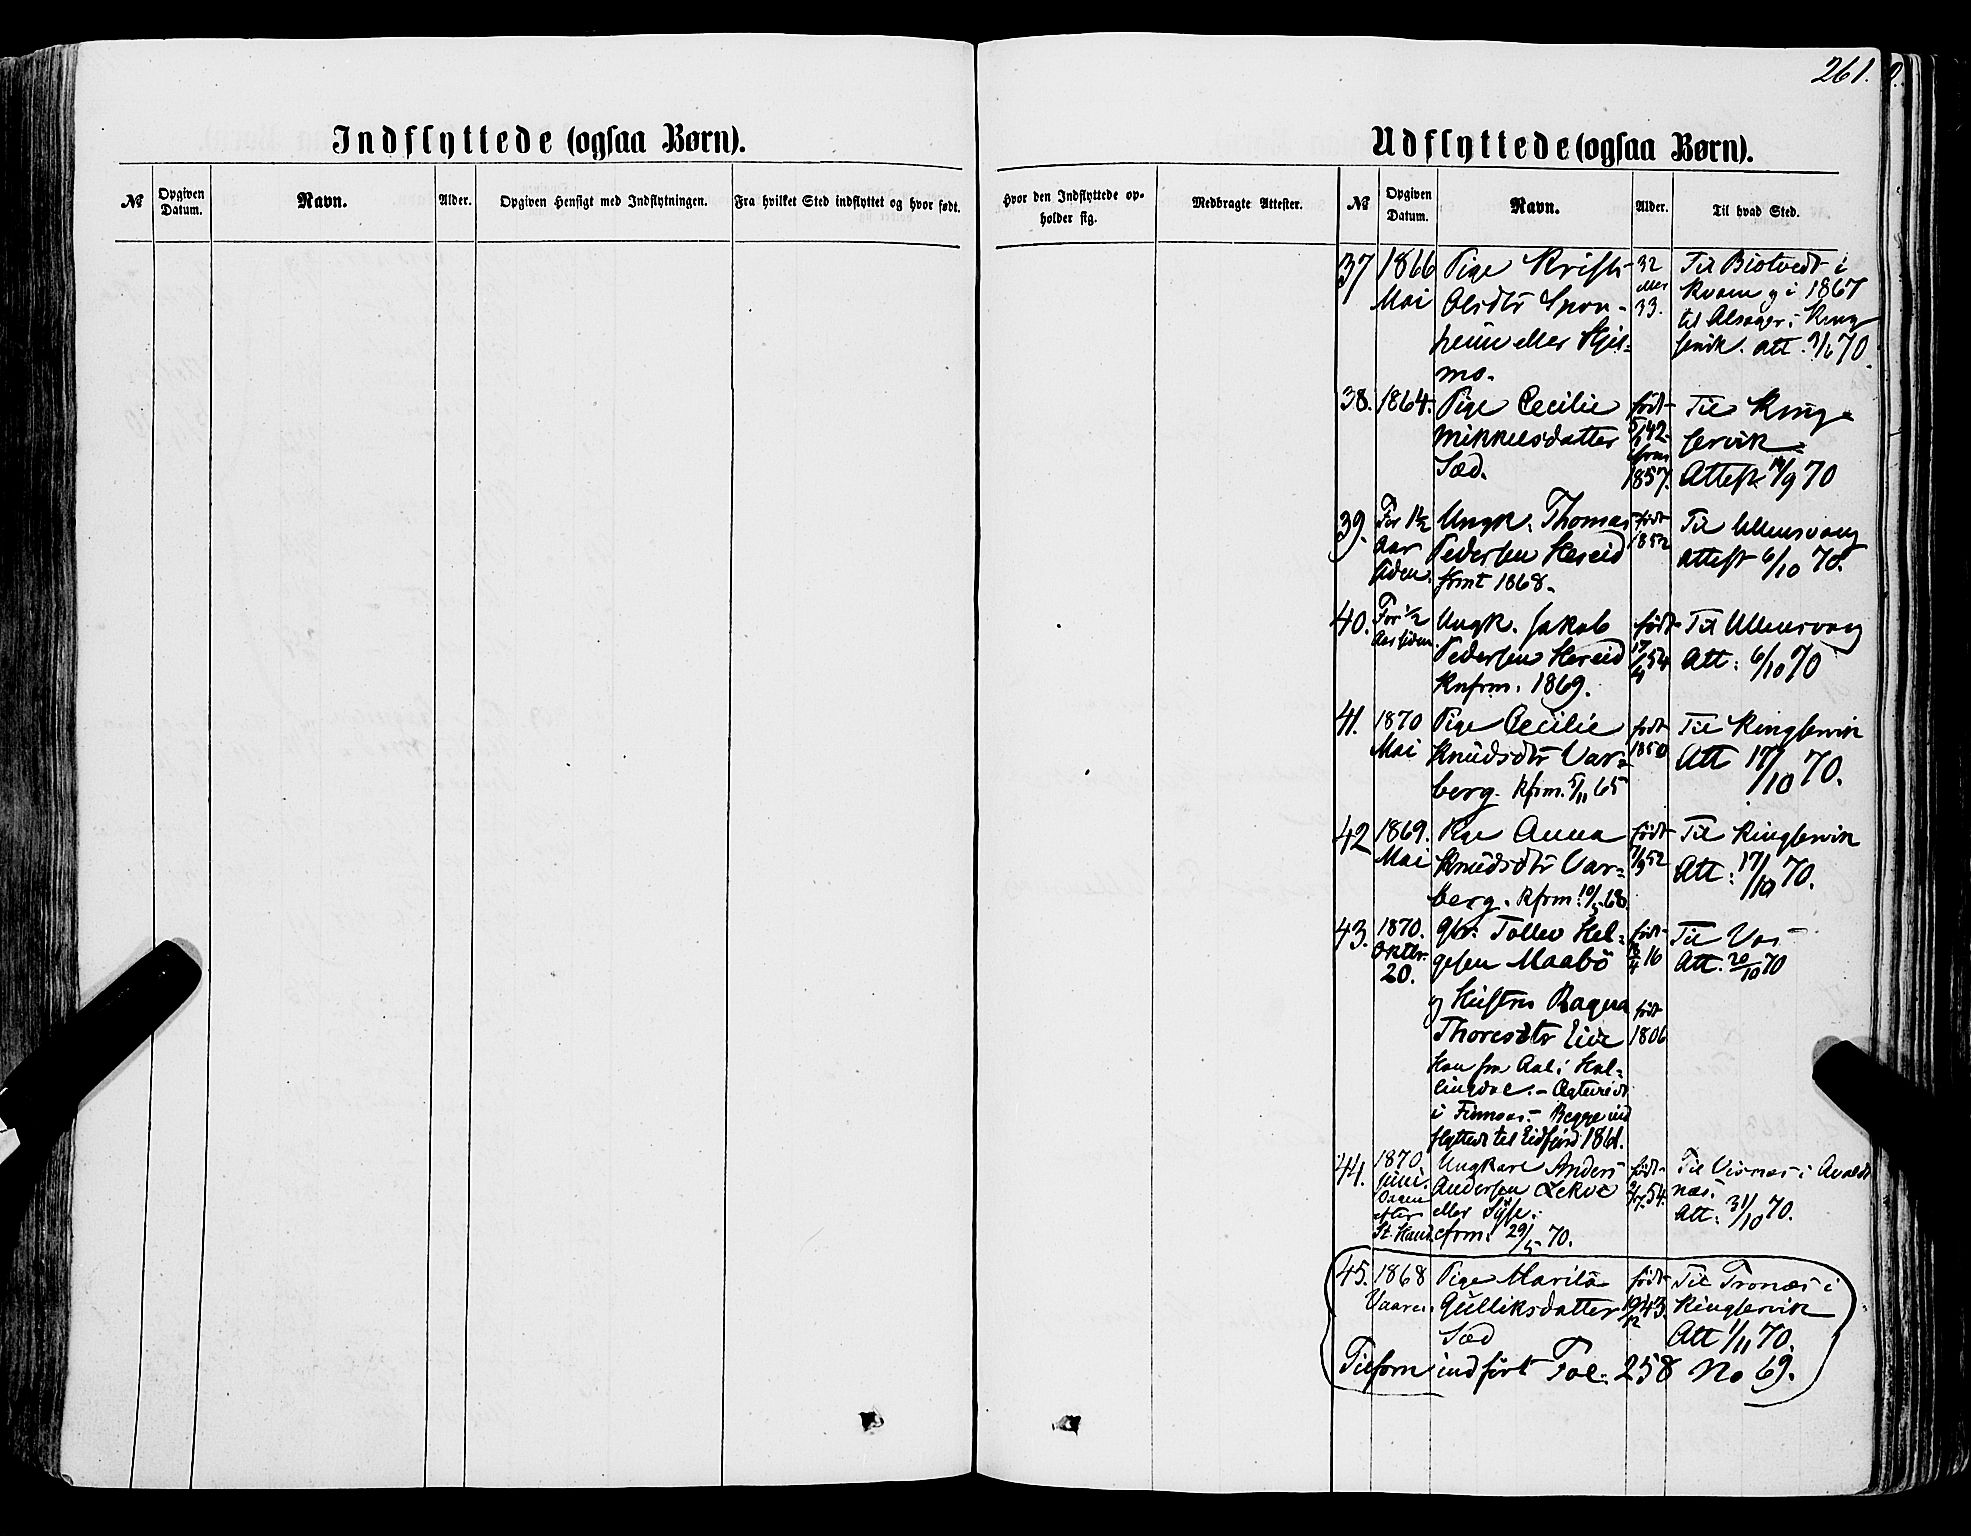 261.
Indflyttede (ogsaa Børn).
№
Opgiven Datum.
Navn.
Alder.
Opgiven Hensigt med Indflytningen.
Fra hvilket Sted indflyttet og hvor født.
Udflyttede (ogsaa Børn).
Hvor den Indflyttede op-
holder sig.
Medbragte Attester.
№
Opgiven Datum.
Navn.
Alder.
Til hvad Sted.
37 1866 Pige 32 Til i
Mai Olsdtr Spon- eller Kvam og i 1867
heim eller Hjel- 33. til i King
mo. servik. Att. 70.
38. 1864. Pige Cecilie født Til King-
Mikkelsdatter 42 servik.
Sæd. 1857. Attest 70
39. For 1½ Ungk. Thomas født Til Ullensvang
Aar Pedersen Hereid 1852 Attest 6/10 70.
siden. 1868.
40. For ½ Ungk. Jakob født Til Ullensvang
Aar siden Pedersen Hereid 54 Att: 6/10 70
Knfrm. 1869.
41. 1870 Pige Cecilie født Til Kingservik
Mai Knudsdtr Var- 1850 Att 17/10 70.
berg. Kfrm. 5/11 65
42 1869. Pige Anna født Til Kingservik
Mai Knudsdtr Var- 52 Att: 17/10 70.
berg. Kfrm. 68.
43. 1870. Tollev Hel- født Til Vos
Oktbr. gesen Maabö 16 Att. 20/10 70
20.
og Hustru Ragna født
Thoresdtr Eide 1806
Han fra Aal i Hal-
lingdal. - Ægteviet
i Begge ind
flyttet til Eidfjord 1861.
44. 1870. Ungkarl Anders født Til Visnes i Avalds
Juni. Andersen Lekve 54. næs.
Dagen eller Att: 31/10 70.
efter
St. Hans. cfrm. 29/5 70.
45. 1868 Pige Marita født Til Tronæs i
Vaaren. Gulliksdatter 43. Kingservik
Sæd Att 1/11 70.
Tilforn indført Fol. 258 No 69.